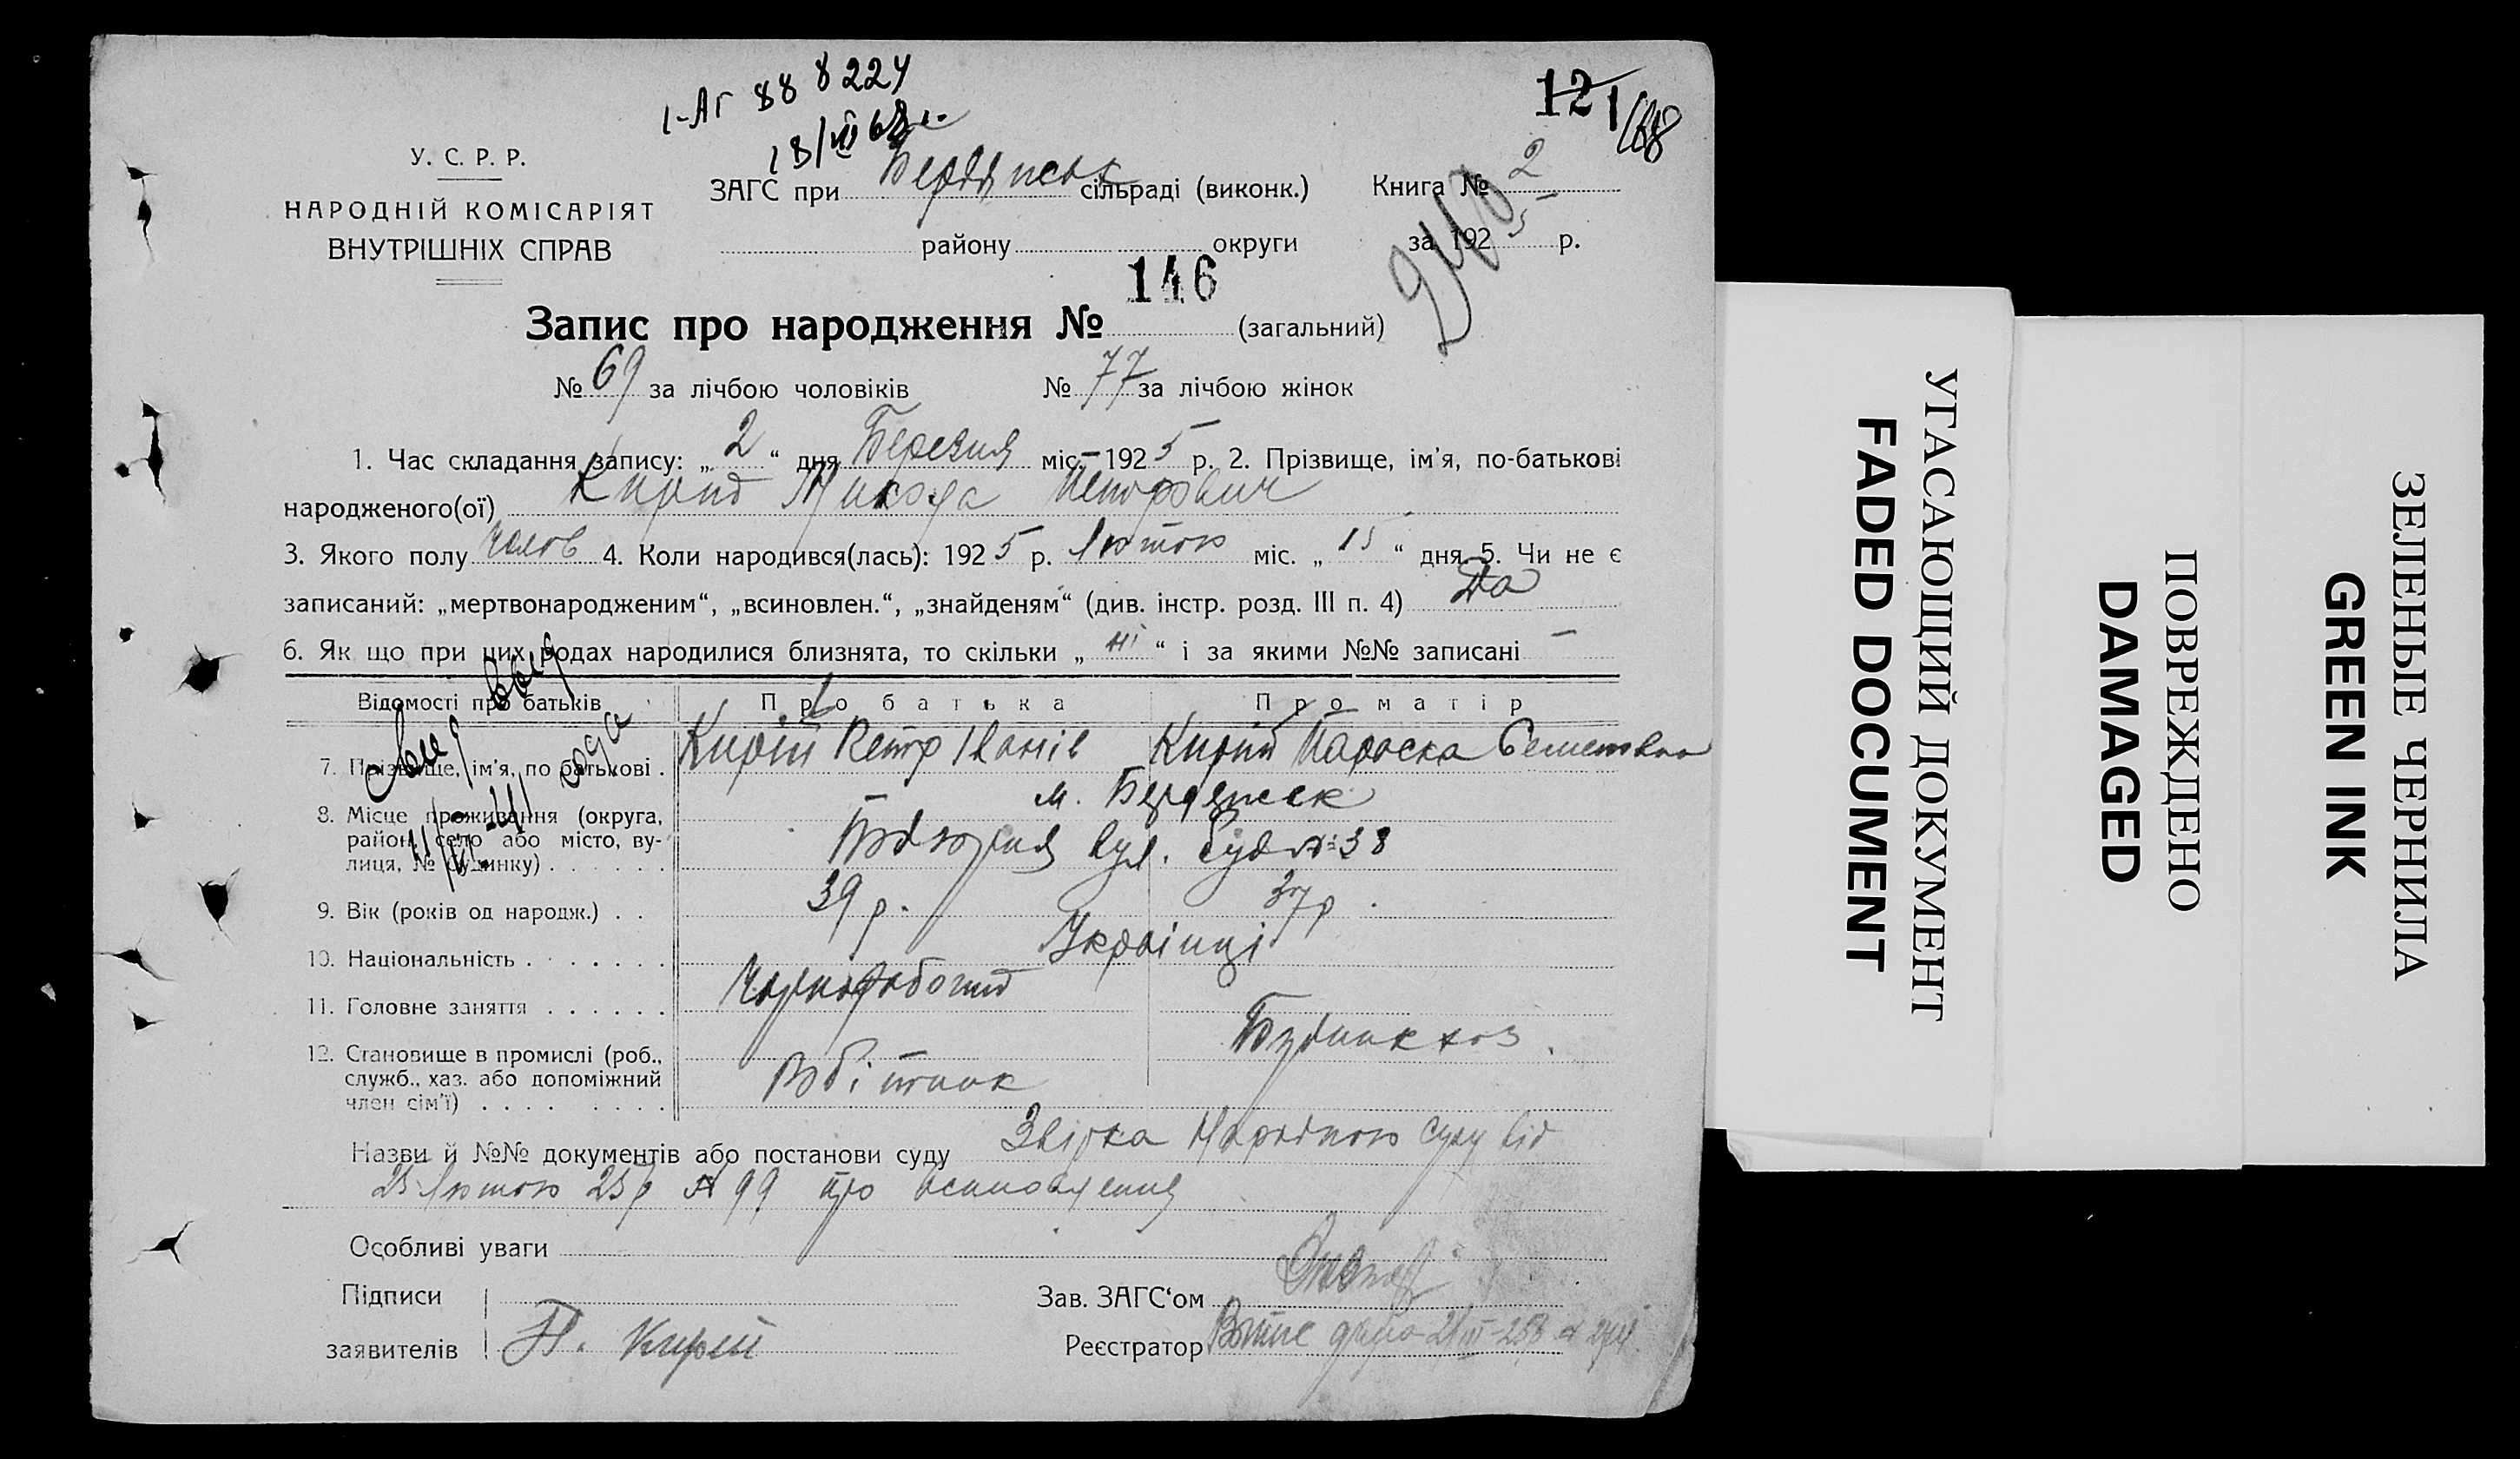 1-АГ 888224
121/168
18/VI 68 г.
У. С. Р. Р.
НАРОДНІЙ КОМІСАРІЯТ
ВНУТРІШНІХ СПРАВ
ЗАГС при Бердянськ сільраді (виконк.) Книга № 2
району округи за 1925 р.
146
Запис про народження № (загальний)
№ 69 за лічбою чоловіків № 77 за лічбою жінок
1. Час складання запису: „ 2 “ дня Березня міс. 1925 р. 2. Прізвище, ім'я, по-батькові
народженого(ої) Кирій Микола Петрович
3. Якого полу Чолов 4. Коли народився(лась): 1925 р. Лютого міс. „ 15 “ дня 5. Чи не є
записаний: „мертвонародженим“, „всиновлен.“, „знайденям“ (див. інстр. розд. III п. 4) Да
6. Як що при цих родах народилися близнята, то скільки „ ні “ і за якими №№ записані —
Відомості про батьків Про батька Про матір
7. Прізвище, ім'я, по батькові . Кирій Петр Іванів Кирій Параска Семеновна
м. Бердянськ
8. Місце проживання (округа,
район, село або місто, ву-
лиця, № будинку) . . . . . . вул. буд № 38
9. Вік (років од народж.) . . 39 р. 37 р.
10. Національність . . . . . . . Українці
11. Головне заняття . . . . . . Чорноробочий
Будинк хоз.
12. Становище в промислі (роб.,
служб., хаз. або допоміжний
член сім'ї) . . . . . . . . Робітник
Назви й №№ документів або постанови суду Народного суду від
25 Лютого 25 р № 99 про всиновлення
Особливі уваги
Підписи
заявителів П. Кирій
Зав. ЗАГС'ом
Реєстратор
УГАСАЮЩИЙ ДОКУМЕНТ
FADED DOCUMENT
ПОВРЕЖДЕНО
DAMAGED
ЗЕЛЕНЫЕ ЧЕРНИЛА
GREEN INK